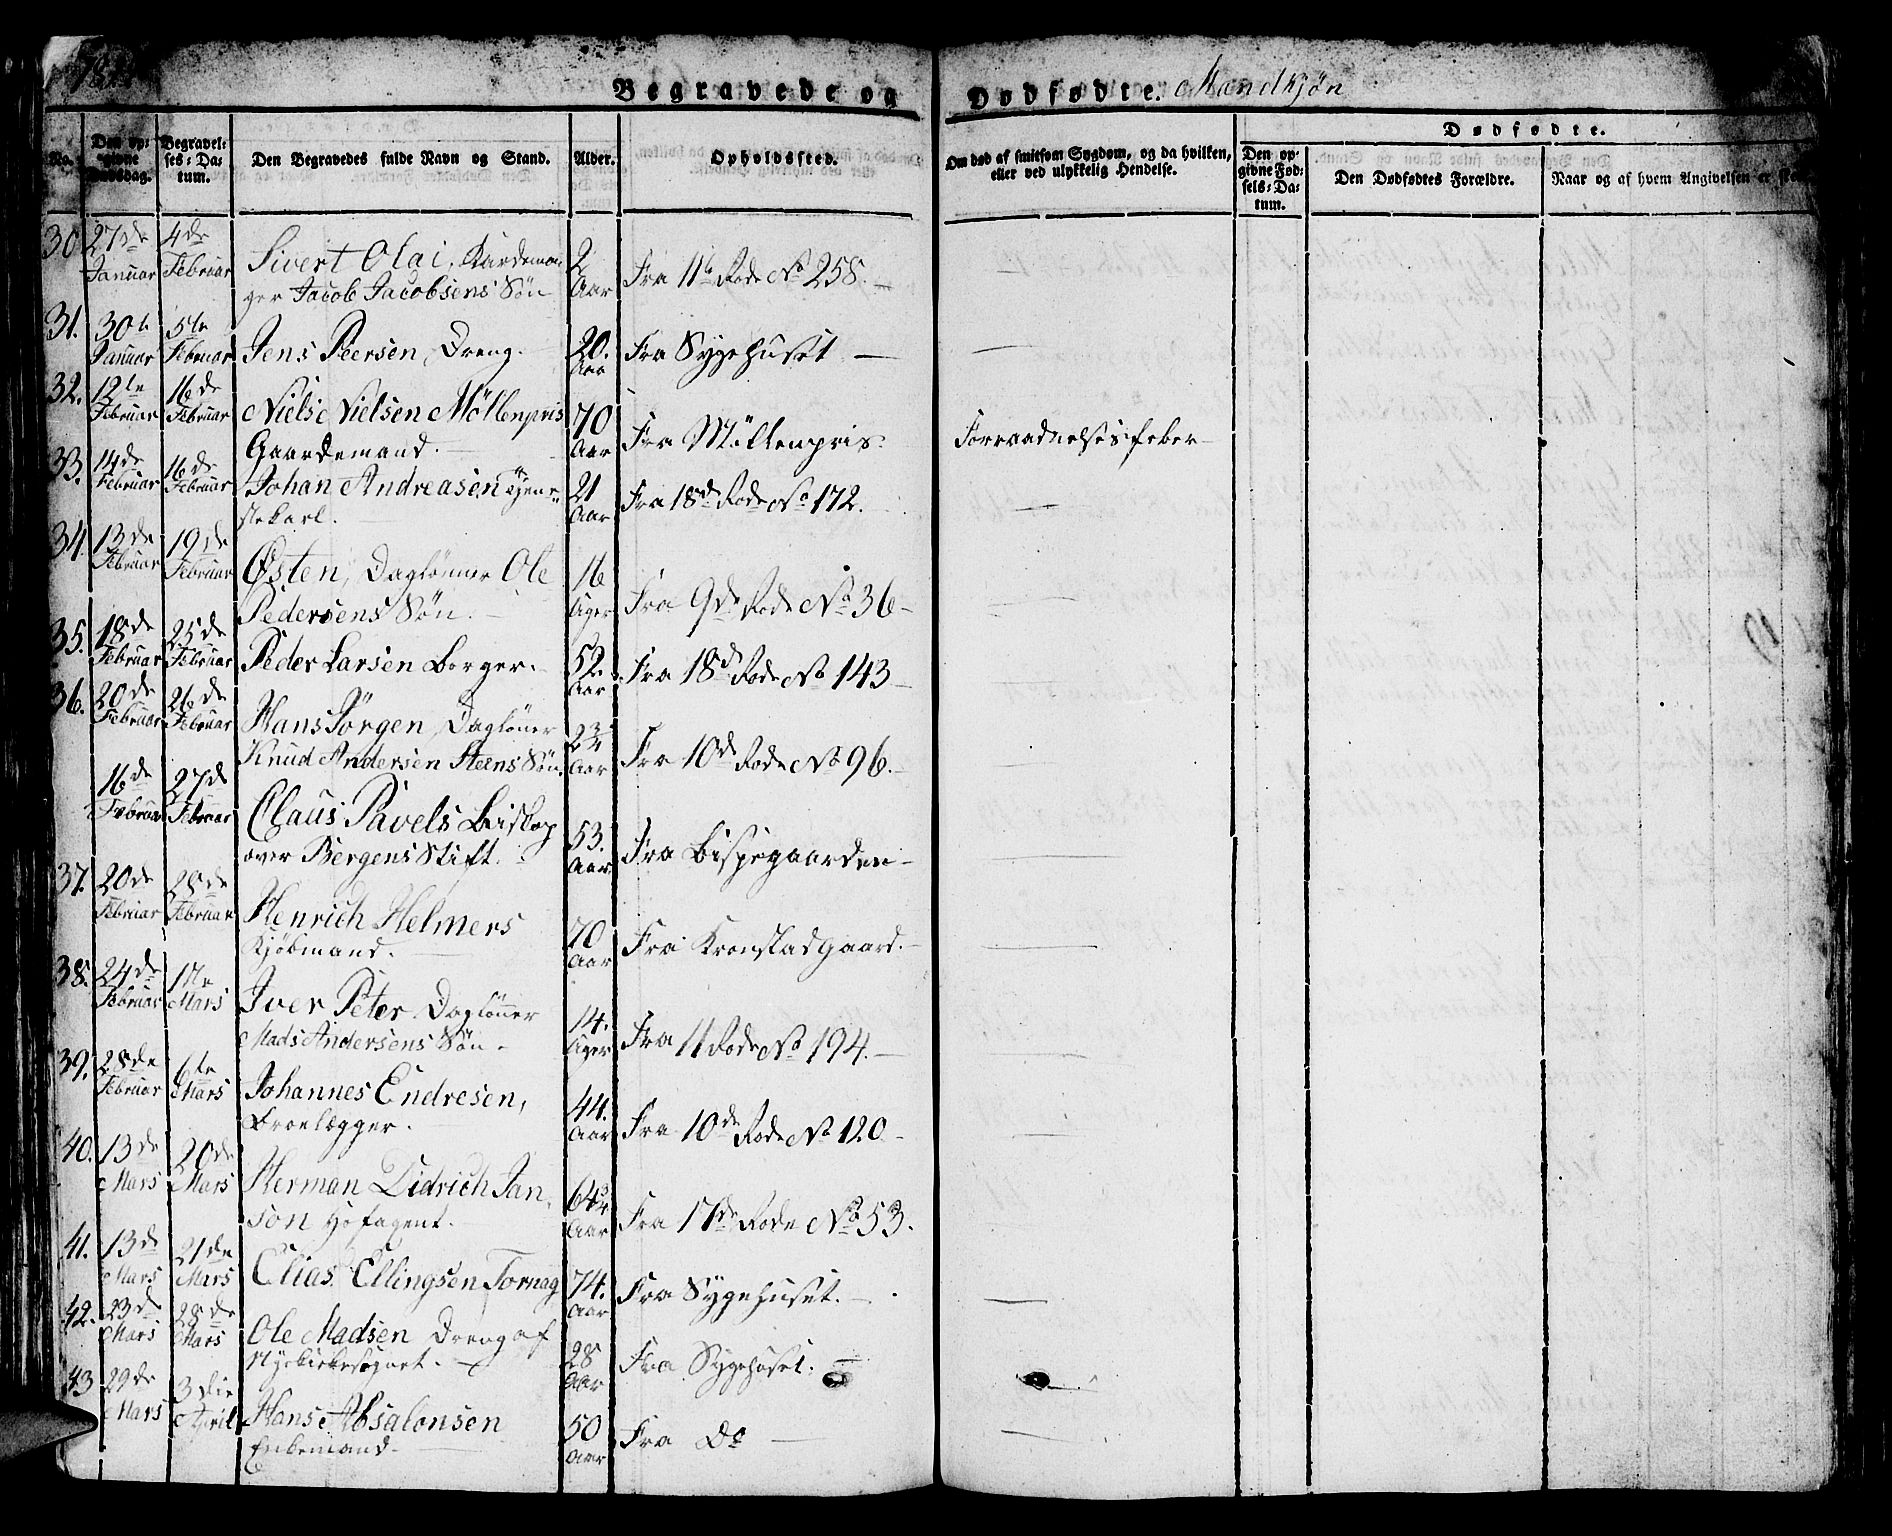 Begravede og Dødfødte. Mandkjøn
No.
Den opgivne Dødsdag.
Begravelses-Datum.
Den Begravedes fulde Navn og Stand.
Alder.
Opholdssted.
Om død af smitsom Sygdom, og da hvilken, eller ved ulykkelig Hendelse.
Dødfødte.
Den opgivne Fødsels-Datum.
Den Dødfødtes Forældre.
Naar og af hvem Angivelsen er
30 27de Januar 4de Februar Sivert Olai, Kardeman
ger Jacob Jacobsens Søn 2 Aar Fra 11te Rode No 258. —
31. 30te Januar 5te Februar Jens Peersen, Dreng. 20. Aar Fra Sygehuset —
32. 12te Februar 16de Februar Niels Nielsen Möllenpris
Gaardemand. 70 Aar Fra Möllenpris. Forraadnelsesfeber
33. 14de Februar 16de Februar Johan Andreasen Tjene-
stekarl. 21 Aar Fra 18de Rode No 172.
34. 13de Februar 19de Februar Østen, Daglönner Ole
Pedersens Søn. 16 Uger Fra 9de Rode No 36 —
35. 18de Februar 25de Februar Peder Larsen Borger. 52. Aar Fra 18de Rode No 143
36. 20de Februar 26de Februar Hans Jörgen, Daglöner
Knud Andersen Steens Søn. 2 3/4 Aar Fra 10de Rode No 96. —
16de Februar 27de Februar Claus Pavels Biskop
over Bergens Stift. 53. Aar Fra Bispegaarden —
37. 20de Februar 28de Februar Henrich Helmers
Kjöbmand. 70 Aar Fra Kronstadgaard. —
38. 24de Februar 1ste Mars Iver Peter, Daglönner
Mads Andersens Søn. 14. Uger Fra 11 Rode No 194. —
39. 28de Februar 6te Mars Johannes Endresen,
Broelægger. 44. Aar Fra 10de Rode No 120 —
40. 13de Mars 20de Mars Herman Didrich Jan-
son Hofagent. 64 3/4 Aar Fra 17de Rode No 53.
41. 13de Mars 21de Mars Elias Ellingsen Fornag 74. Aar Fra Sygehuset. —
42. 23de Mars 28de Mars Ole Madsen Dreng af
Nyekirkesognet. 28 Aar Fra Sygehuset. —
43 29de Mars 3die April Hans Absalonsen
Enkemand — 50 Aar Fra Do —